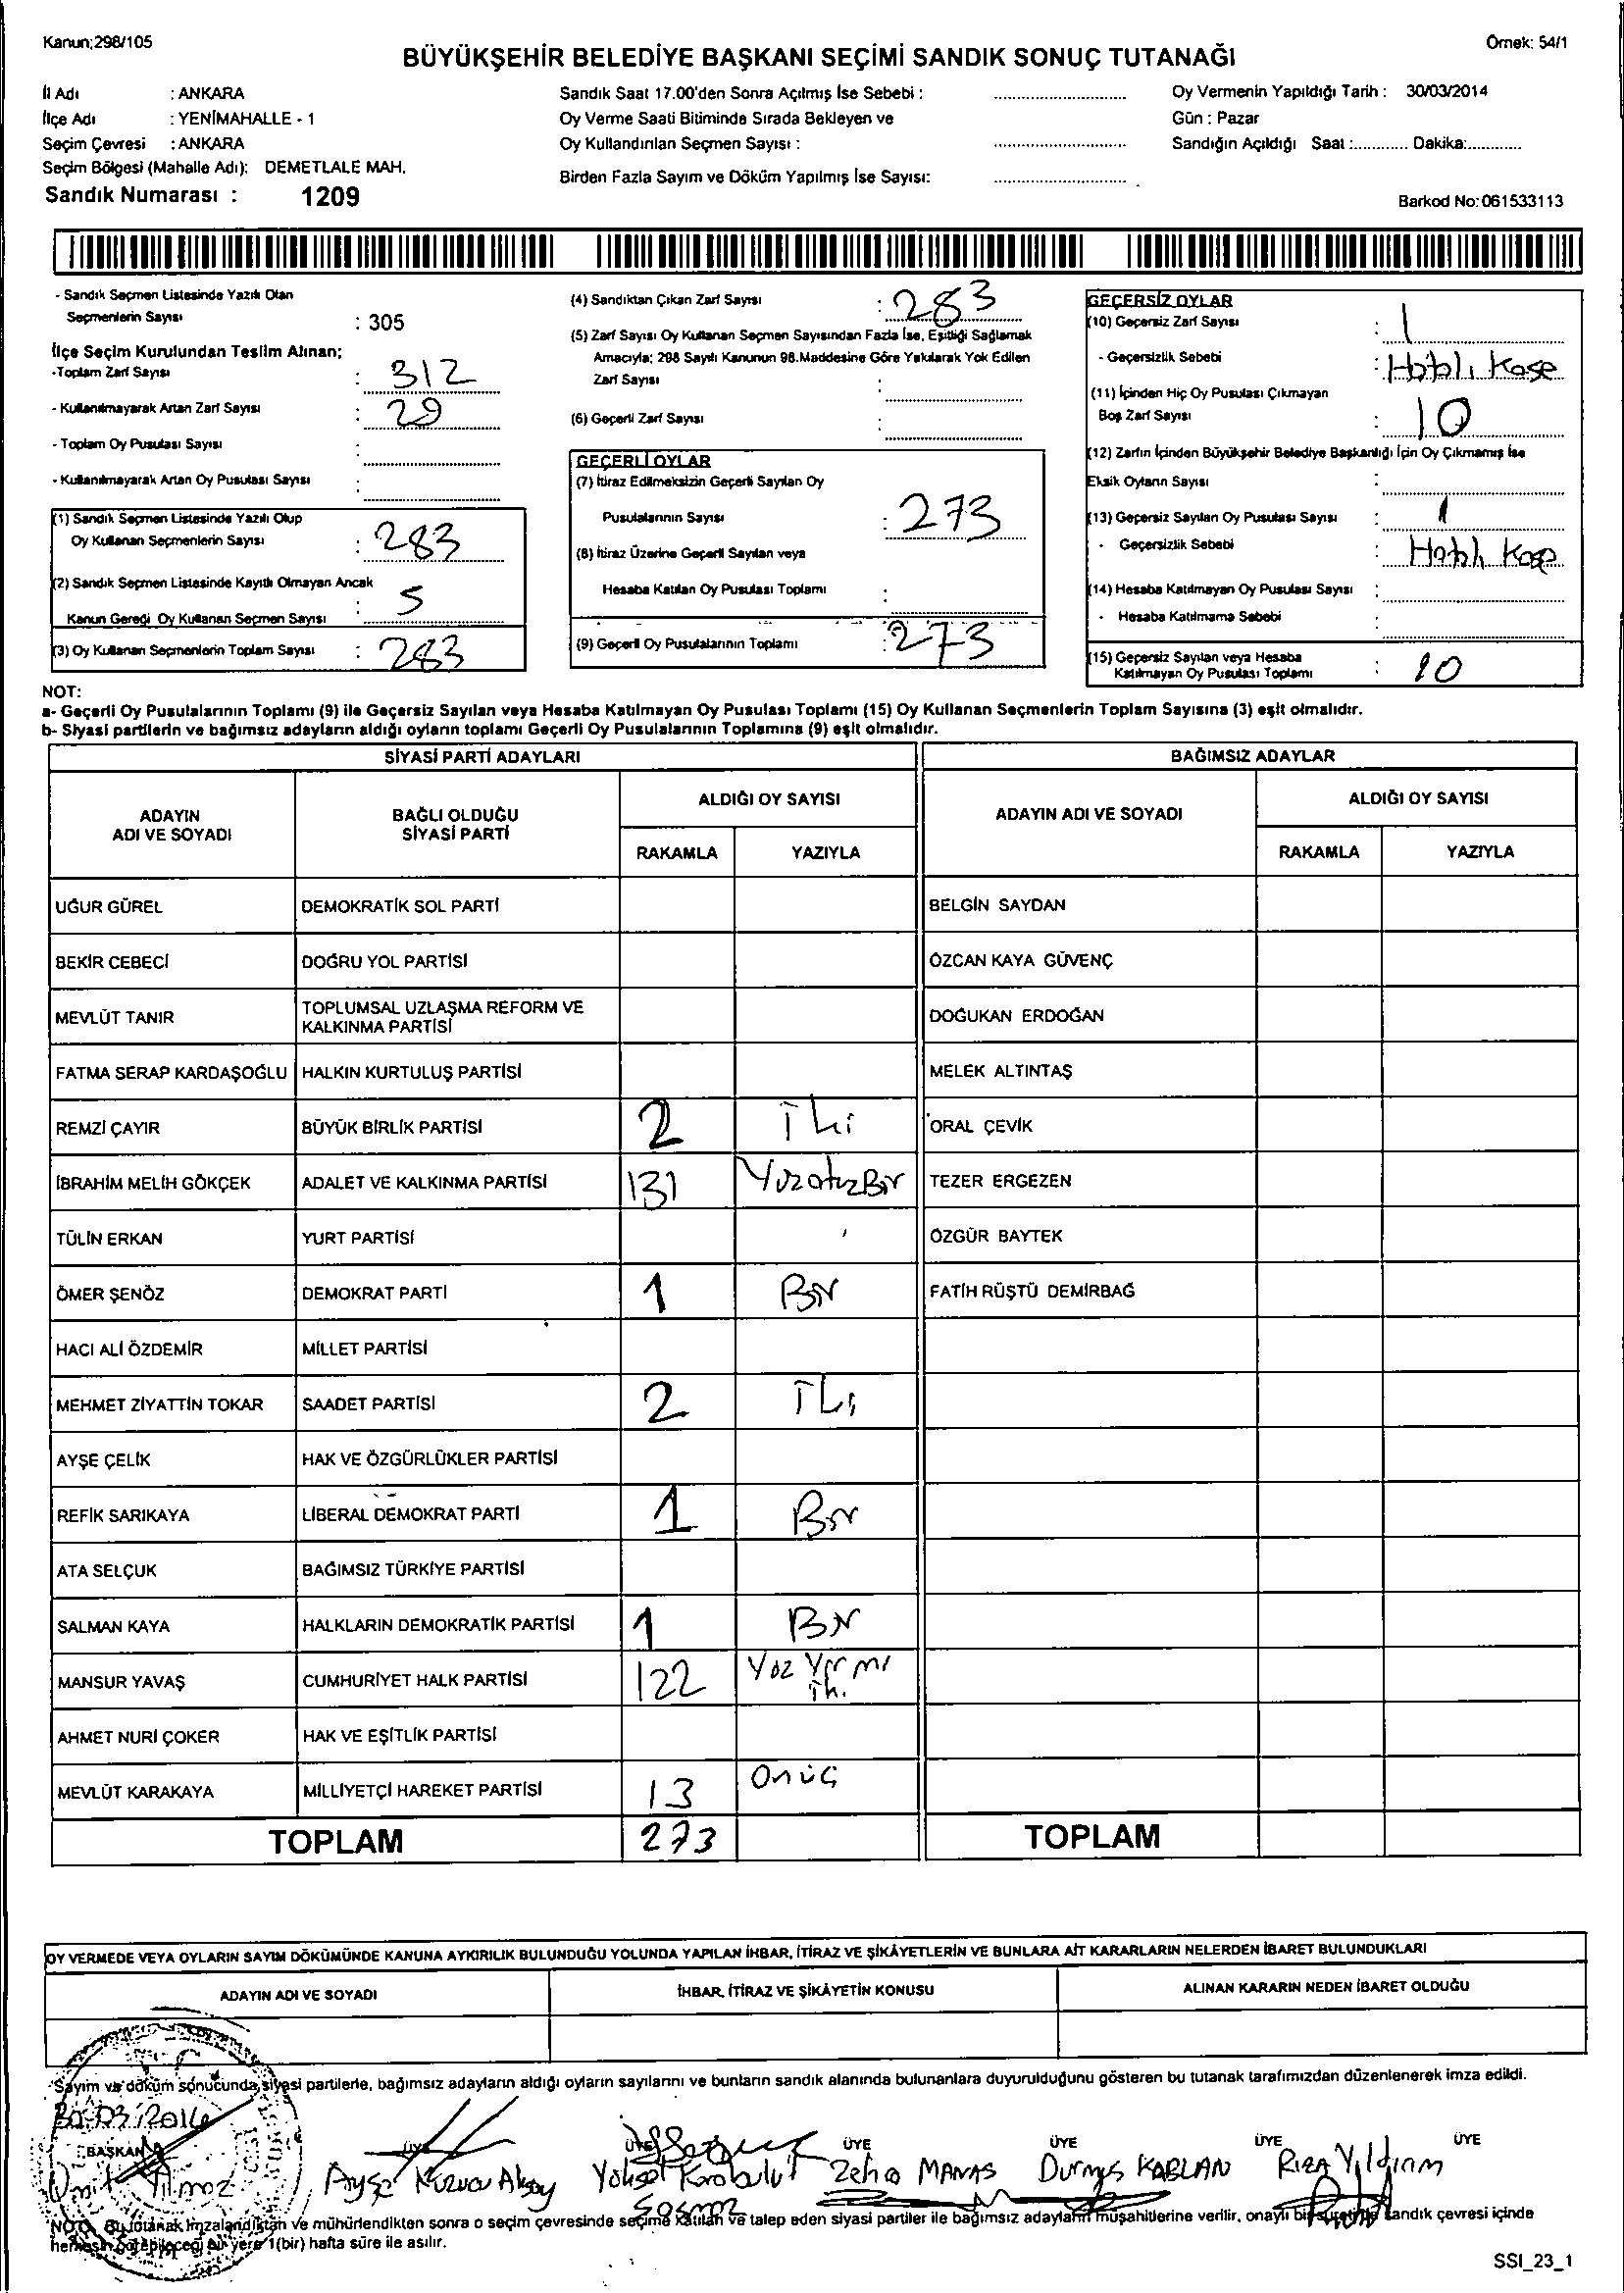 Kanun;298/105
Örnek: 54/1
BÜYÜKŞEHİR BELEDİYE BAŞKANI SEÇİMİ SANDIK SONUÇ TUTANAĞI
İl Adı : ANKARA
İlçe Adı : YENİMAHALLE - 1
Seçim Çevresi : ANKARA
Seçim Bölgesi (Mahalle Adı): DEMETLALE MAH.
Sandık Numarası : 1209
Sandık Saat 17.00'den Sonra Açılmış İse Sebebi :
Oy Verme Saati Bitiminde Sırada Bekleyen ve
Oy Kullandırılan Seçmen Sayısı :
Birden Fazla Sayım ve Döküm Yapılmış İse Sayısı:
Oy Vermenin Yapıldığı Tarih : 30/03/2014
Gün : Pazar
Sandığın Açıldığı Saat :............ Dakika:............
Barkod No:061533113
- Sandık Seçmen Listesinde Yazılı Olan
Seçmenlerin Sayısı : 305
İlçe Seçim Kurulundan Teslim Alınan;
-Toplam Zarf Sayısı : 312
- Kullanılmayarak Artan Zarf Sayısı : 29
- Toplam Oy Pusulası Sayısı :
- Kullanılmayarak Artan Oy Pusulası Sayısı :
(1) Sandık Seçmen Listesinde Yazılı Olup
Oy Kullanan Seçmenlerin Sayısı : 283
(2) Sandık Seçmen Listesinde Kayıtlı Olmayan Ancak
Kanun Gereği Oy Kullanan Seçmen Sayısı : 5
(3) Oy Kullanan Seçmenlerin Toplam Sayısı : 283
(4) Sandıktan Çıkan Zarf Sayısı : 283
(5) Zarf Sayısı Oy Kullanan Seçmen Sayısından Fazla İse, Eşitliği Sağlamak
Amacıyla; 298 Sayılı Kanunun 98.Maddesine Göre Yakılarak Yok Edilen
Zarf Sayısı :
(6) Geçerli Zarf Sayısı :
GEÇERLİ OYLAR
(7) İtiraz Edilmeksizin Geçerli Sayılan Oy
Pusulalarının Sayısı : 273
(8) İtiraz Üzerine Geçerli Sayılan veya
Hesaba Katılan Oy Pusulası Toplamı :
(9) Geçerli Oy Pusulalarının Toplamı : 273
GEÇERSİZ OYLAR
(10) Geçersiz Zarf Sayısı : 1
- Geçersizlik Sebebi : Hatalı Kaşe
(11) İçinden Hiç Oy Pusulası Çıkmayan
Boş Zarf Sayısı : 10
(12) Zarfın İçinden Büyükşehir Belediye Başkanlığı İçin Oy Çıkmamış İse
Eksik Oyların Sayısı :
(13) Geçersiz Sayılan Oy Pusulası Sayısı : 1
- Geçersizlik Sebebi : Hatalı Kaşe
(14) Hesaba Katılmayan Oy Pusulası Sayısı :
- Hesaba Katılmama Sebebi :
(15) Geçersiz Sayılan veya Hesaba
Katılmayan Oy Pusulası Toplamı : 10
NOT:
a- Geçerli Oy Pusulalarının Toplamı (9) ile Geçersiz Sayılan veya Hesaba Katılmayan Oy Pusulası Toplamı (15) Oy Kullanan Seçmenlerin Toplam Sayısına (3) eşit olmalıdır.
b- Siyasi partilerin ve bağımsız adayların aldığı oyların toplamı Geçerli Oy Pusulalarının Toplamına (9) eşit olmalıdır.
SİYASİ PARTİ ADAYLARI
BAĞIMSIZ ADAYLAR
ADAYIN ADI VE SOYADI
BAĞLI OLDUĞU SİYASİ PARTİ
ALDIĞI OY SAYISI
RAKAMLA YAZIYLA
ADAYIN ADI VE SOYADI
ALDIĞI OY SAYISI
RAKAMLA YAZIYLA
UĞUR GÜREL DEMOKRATİK SOL PARTİ BELGİN SAYDAN
BEKİR CEBECİ DOĞRU YOL PARTİSİ ÖZCAN KAYA GÜVENÇ
MEVLÜT TANIR TOPLUMSAL UZLAŞMA REFORM VE KALKINMA PARTİSİ DOĞUKAN ERDOĞAN
FATMA SERAP KARDAŞOĞLU HALKIN KURTULUŞ PARTİSİ MELEK ALTINTAŞ
REMZİ ÇAYIR BÜYÜK BİRLİK PARTİSİ 2 İki ORAL ÇEVİK
İBRAHİM MELİH GÖKÇEK ADALET VE KALKINMA PARTİSİ 131 YüzotuzBir TEZER ERGEZEN
TÜLİN ERKAN YURT PARTİSİ ÖZGÜR BAYTEK
ÖMER ŞENÖZ DEMOKRAT PARTİ 1 Bir FATİH RÜŞTÜ DEMİRBAĞ
HACI ALİ ÖZDEMİR MİLLET PARTİSİ
MEHMET ZİYATTİN TOKAR SAADET PARTİSİ 2 İki
AYŞE ÇELİK HAK VE ÖZGÜRLÜKLER PARTİSİ
REFİK SARIKAYA LİBERAL DEMOKRAT PARTİ 1 Bir
ATA SELÇUK BAĞIMSIZ TÜRKİYE PARTİSİ
SALMAN KAYA HALKLARIN DEMOKRATİK PARTİSİ 1 Bir
MANSUR YAVAŞ CUMHURİYET HALK PARTİSİ 122 Yüz Yirmi İki
AHMET NURİ ÇOKER HAK VE EŞİTLİK PARTİSİ
MEVLÜT KARAKAYA MİLLİYETÇİ HAREKET PARTİSİ 13 Onüç
TOPLAM 273 TOPLAM
OY VERMEDE VEYA OYLARIN SAYIM DÖKÜMÜNDE KANUNA AYKIRILIK BULUNDUĞU YOLUNDA YAPILAN İHBAR, İTİRAZ VE ŞİKÂYETLERİN VE BUNLARA AİT KARARLARIN NELERDEN İBARET BULUNDUKLARI
ADAYIN ADI VE SOYADI İHBAR, İTİRAZ VE ŞİKÂYETİN KONUSU ALINAN KARARIN NEDEN İBARET OLDUĞU
Sayım ve döküm sonucunda, siyasi partilerle, bağımsız adayların aldığı oyların sayılarını ve bunların sandık alanında bulunanlara duyurulduğunu gösteren bu tutanak tarafımızdan düzenlenerek imza edildi.
30.03.2014
BAŞKAN ÜYE ÜYE ÜYE ÜYE ÜYE ÜYE
Ümit Yılmaz Ayşe Kuzucu Aksoy Yüksel Karabulut Zeha MANAS Durmuş KABLAN RızA Yıldırım
NOT: Bu tutanak imzalandıktan ve mühürlendikten sonra o seçim çevresinde seçime katılan ve talep eden siyasi partiler ile bağımsız adayların müşahitlerine verilir, onaylı bir sureti de sandık çevresi içinde
herkesin görebileceği bir yere 1(bir) hafta süre ile asılır.
SSI_23_1